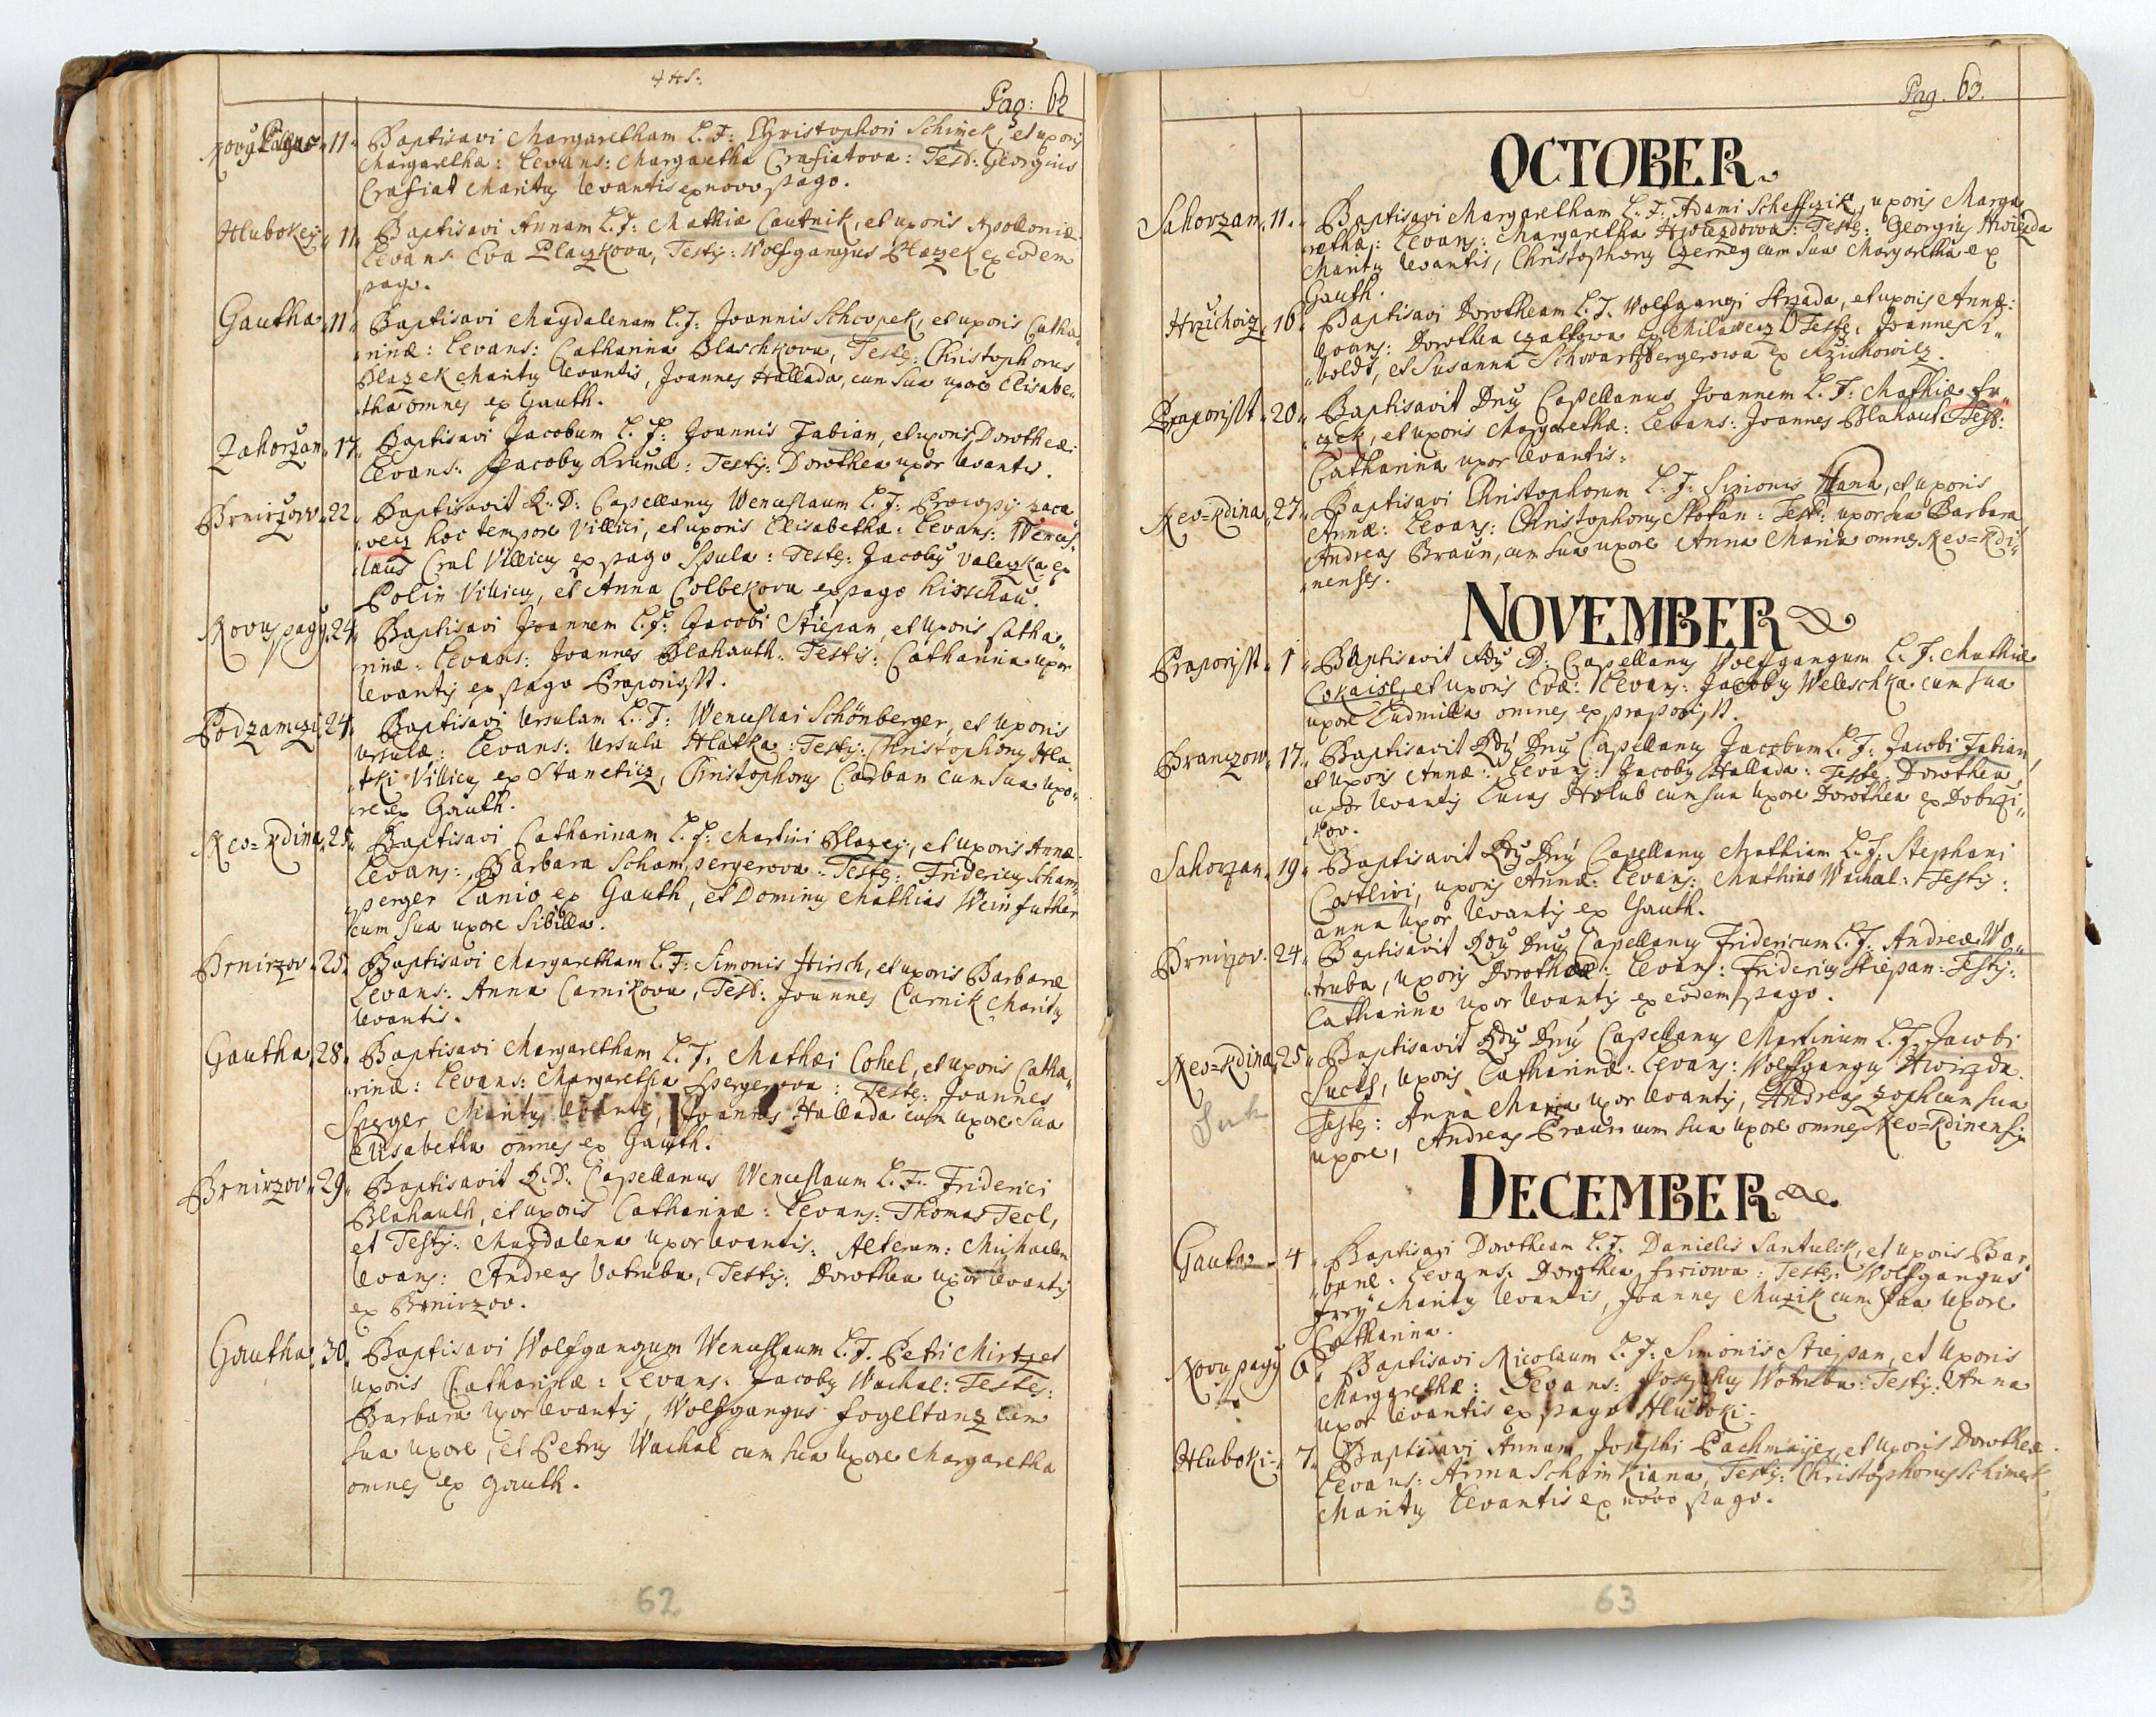 Pag: 62
Novy Pagus 11 Baptisavi Margaretham L. F: Christophori Schimek, et uxoris
Margarethæ: Levans: Margaretha Crasiatova: Test: Georgius
Crasiat Marity levantis ex novo pago.
Hlubokey 11 Baptisavi Annam L. F: Mathiæ Cautnik, et uxoris Apolloniæ
Levans Eva Placzkova, Testis: Wolfgangus Placzek ex eodem
pago.
Gautha 11 Baptisavi Magdalenam L. F: Joannis Schovpek, et uxoris Catha„
„rinæ: Levans: Catharina Blaschkova, Testes: Christophorus
Blazek Marity levantis, Joannes Hallada, cum sua uxore Elisabe„
„tha omnes ex Gauth.
Zahorzan 17 Baptisavi Jacobum L. F: Joannis Fabian, et uxoris Dorotheæ:
Levans: Jacoby Kruml: Testis: Dorothea uxor levantis.
Brnirzow 22 Baptisavit R: D: Capellany Wenceslaum L. F: Procopy zaca„
„vecz hoc tempore Villici, et uxoris Elisabethæ: Levans: Wences„
„laus Cral Villicy ex pago Spula: Testes: Jacoby Valeczka ex
Polin Villicy, et Anna Colbekova ex pago hirschau.
Novus pagy 24 Baptisavi Joannem L. F: Jacobi Stiepan, et uxoris Catha„
„rinæ: Levans: Joannes Blahauth: Testis: Catharina uxor
levantis ex pago Praporist.
Podzamczi 24 Baptisavi Ursulam L. F: Wenceslai Schönberger, et uxoris
Ursulæ: Levans: Ursula Hlatka: Testis: Christophory Hla„
„tki Villicy ex Staneticz, Christophory Cadban cum sua uxo„
„re ex Gauth.
Neo=Kdina 25 Baptisavi Catharinam L. F: Martini Blazey, et uxoris Annæ
Levans: Barbara Schamspergerova: Testes: Fridericy Scham„
„sperger Lanio ex Gauth, et Dominy Mathias Weinfuther
cum sua uxore Sibilla.
Brnirzov 25 Baptisavi Margaretham L. F: Simonis Hirsch, et uxoris Barbaræ
Levans: Anna Carnikova, Test: Joannes Carnik Marity
levantis.
Gautha 28 Baptisavi Margaretham L. F. Mathæi Cohel, et uxoris Catha„
„rinæ: Levans: Margaretha Spergerova: Testes: Joannes
Sperger Marity levantis, Joannes Hallada cum uxore sua
Elisabetha omnes ex Gauth.
Brnirzov 29 Baptisavit R: D: Capellanus Wenceslaum L. F. Friderici
Blahauth, et uxoris Catharinæ: Levans: Thomas Tecl,
et Testis: Magdalena uxor levantis: Alterum: Michaelem
levans: Andreas Votruba, Testis: Dorothea uxor levantis
ex Brnirzov.
Gautha 30 Baptisavi Wolfgangum Wenceslaum L. F. Petri Mirtz et
uxoris Catharinæ: Levans: Jacoby Wachal: Testes:
Barbara uxor levantis, Wolfgangus fogltanz cum
sua uxore, et Petrus Wachal cum sua uxore Margaretha
omnes ex Gauth.
62
Pag. 63.
OCTOBER
Sahorzan 11 Baptisavi Margaretham L. F: Adami Scheffczik, uxoris Marga„
„rethæ: Levans: Margaretha Hwiezdova: Testes: Georgius Hwiezda
Marity levantis, Christophory Czerney cum sua Margaretha ex
Gauth.
16 Baptisavi Dorotheam L. F. Wolfgangi Strzada, et uxoris Annæ:
levans: Dorothea ex Milavecz Testes: Joannes Si„
„boldt, et Susanna Schwartzbergerowa ex
Praporist 20 Baptisavit Dny Capellanus Joannem L. F: Mathiæ Fr„
„czek, et uxoris Margarethæ: Levans: Joannes Blahaut Test:
Catharina uxor levantis.
Neo=Kdina 27 Baptisavi Christophorum L. F: Simonis Hana, et uxoris
Annæ: Levans: Christophory Stofan: Test: uxor sua Barbara
Andreas Braun, cum sua uxore Anna Maria omnes Neo=Kdi„
„nenses.
NOVEMBER
Praporist 1 Baptisavit D: Capellany Wolfgangum L. F: Mathiæ
Cokaisl, et uxoris Evæ: Levans: Jacoby Weleschka cum sua
uxore Ludmilla omnes ex praporist.
Branczow 17 Baptisavit Rdy Dny Capellany Jacobum L. F: Jacobi Fabian,
et uxoris Annæ: Levans: Jacoby Hallada: Testes: Dorothea
uxor levantis Lucas Holub cum sua uxore Dorothea ex Dobrzi„
„kov.
Sahorzan 19 Baptisavit Rdy Dny Capellany Mathiam L. F. Stephani
Costlivi, uxoris Annæ: Levans: Mathias Wachal: Testis:
anna uxor levantis ex Gauth.
Brnirzov 24 Baptisavit Rdy Dny Capellany Fridericum L. F. Andreæ Wo„
„truba, uxoris Dorotheæ: Levans: Fridericy Stiepan: Testis:
Catharina uxor levantis ex eodem pago.
Neo=Kdina 25 Baptisavit Rdy Dny Capellany Martinum L. F. Jacobi
Such, uxoris Catharinæ: Levans: Wolfgangy Hwiezda
Testes: Anna Maria uxor levantis, Andreas zoph cum sua
uxore, Andreas Praun cum sua uxore omnes Neo=Kdinenses
DECEMBER
Gautha 4 Baptisavi Dorotheam L. F. Danielis Santulik, et uxoris Bar„
„baræ: Levans: Dorothea freiowa: Testes: Wolfgangus
frey Marity levantis, Joannes Muzik cum sua uxore
Catharina.
Novus pagy 6 Baptisavi Nicolaum L. F: Simonis Stiepan, et uxoris
Margarethæ: Levans: Josephy Wotruba: Testis: Anna
uxor levantis ex pago Hluboki.
Hluboki 7 Baptisavi Annam, Josephi Pachmayer, et uxoris Dorotheæ
Levans: Anna Schimkiana, Testis: Christophorus Schimek
Marity Levantis ex novo pago.
63